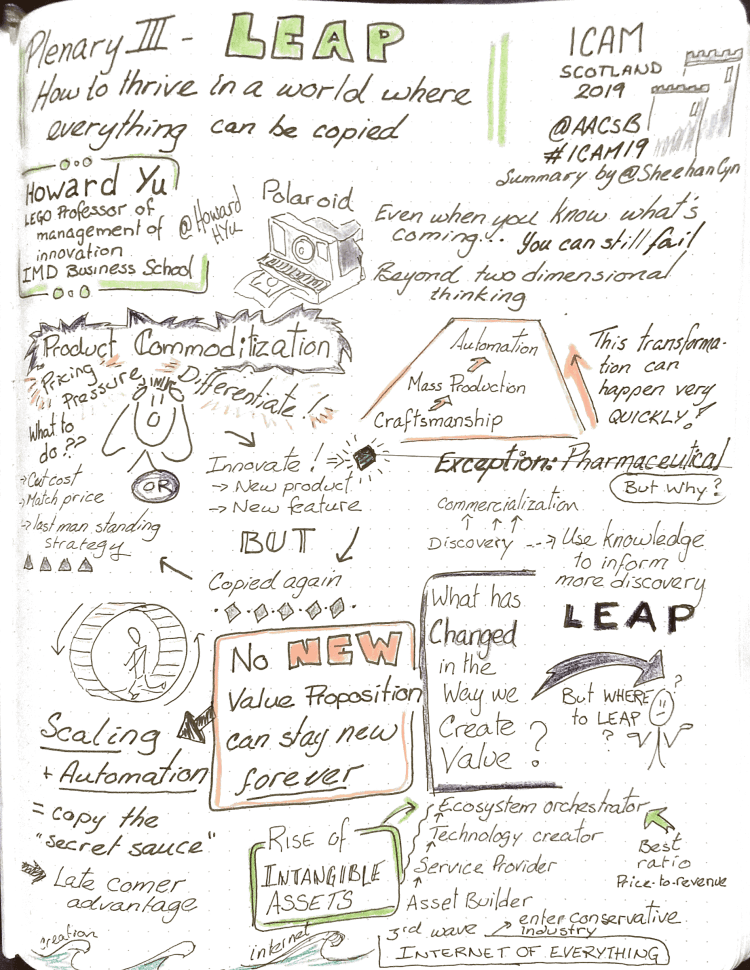 Plenary III - LEAP
How to thrive in a world where
everything can be copied
ICAM
SCOTLAND
2019
@AACSB
#ICAM19
Summary by @SheehanCyn
Howard Yu
LEGO Professor of
management of
innovation
IMD Business School
@Howard
HYu
Polaroid
Even when you know what's
coming... You can still fail
Beyond two dimensional
thinking
Product Commoditization
Pricing
Pressure
Differentiate!
What to
do??
→ Cut cost
→ Match price
→ last man standing
strategy
OR
Innovate! ⇒
→ New product
→ New feature
BUT
Copied again
Automation
Mass Production
Craftsmanship
This transforma-
tion can
happen very
QUICKLY!
Exception: Pharmaceutical
But why?
Commercialization
Discovery ---> Use knowledge
to inform
more discovery
No NEW
Value Proposition
can stay new
forever
What has
Changed
in the
Way we
Create
Value?
LEAP
But WHERE
to LEAP
?
?
Scaling
+ Automation
= copy the
"secret sauce"
Late comer
advantage
Rise of
INTANGIBLE
ASSETS
Ecosystem orchestrator
Technology creator
Service Provider
Asset Builder
Best
ratio
Price-to-revenue
creation
internet
3rd wave → enter conservative
industry
INTERNET OF EVERYTHING